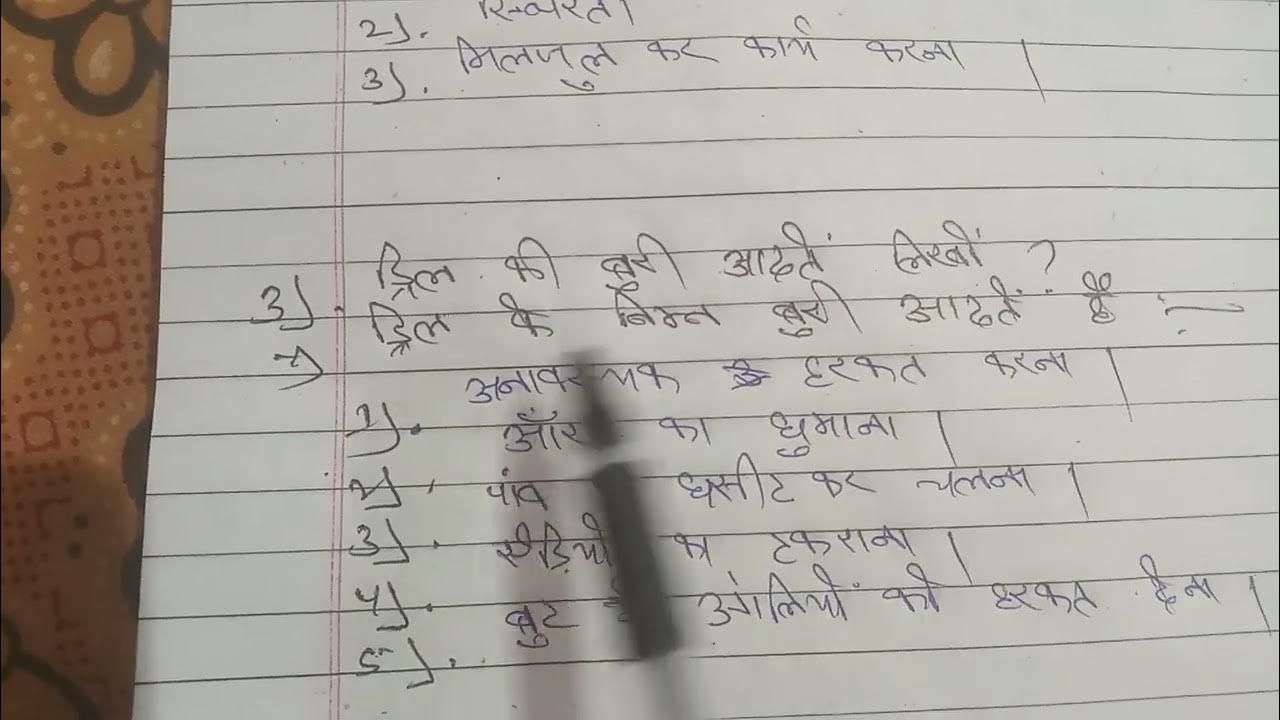 2). स्थिरता।
3). मिलजुल कर कार्य करना ।
3). ड्रिल की बुरी आदतें लिखों ?
→ ड्रिल के निम्न बुरी आदतें हैं :—
1). अनावश्यक हरकत करना ।
2). का घुमाना ।
3). पांव घसीट कर चलना ।
4). ऐड़ियों का टकराना ।
5). बुट उंगलियों को हरकत देना ।